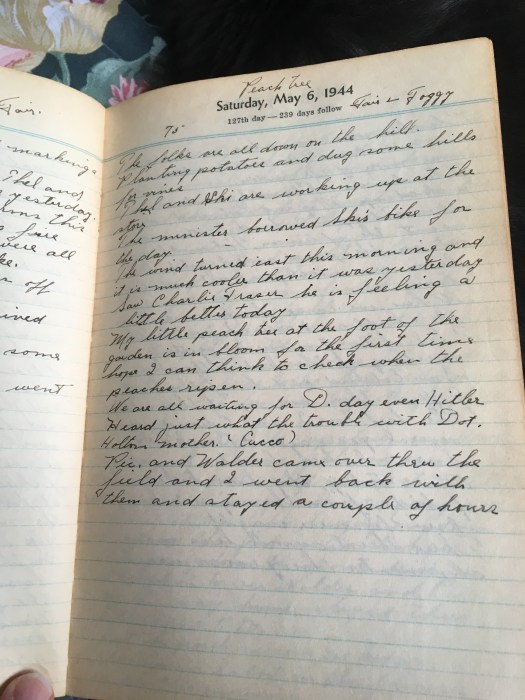 Fair.
markings
Thel and
yesterday.
this
fire
were all
off
some
went
Peach tree
Saturday, May 6, 1944
127th day — 239 days follow
75 Fair & Foggy
The folks are all down on the hill.
Planting potatoes and dug some hills
for mine
Thel and Ski are working up at the
story
The minister borrowed Skis bike for
the day.
The wind turned east this morning and
it is much cooler than it was yesterday
Saw Charlie Fraser he is feeling a
little better today
My little peach tree at the foot of the
garden is in bloom for the first time
hope I can think to check when the
peaches ripen.
We are all waiting for D. day even Hitler
Heard just what the trouble with Dot.
Holtons mother. (Cucco)
Pic. and Walder came over thru the
field and I went back with
them and stayed a couple of hours